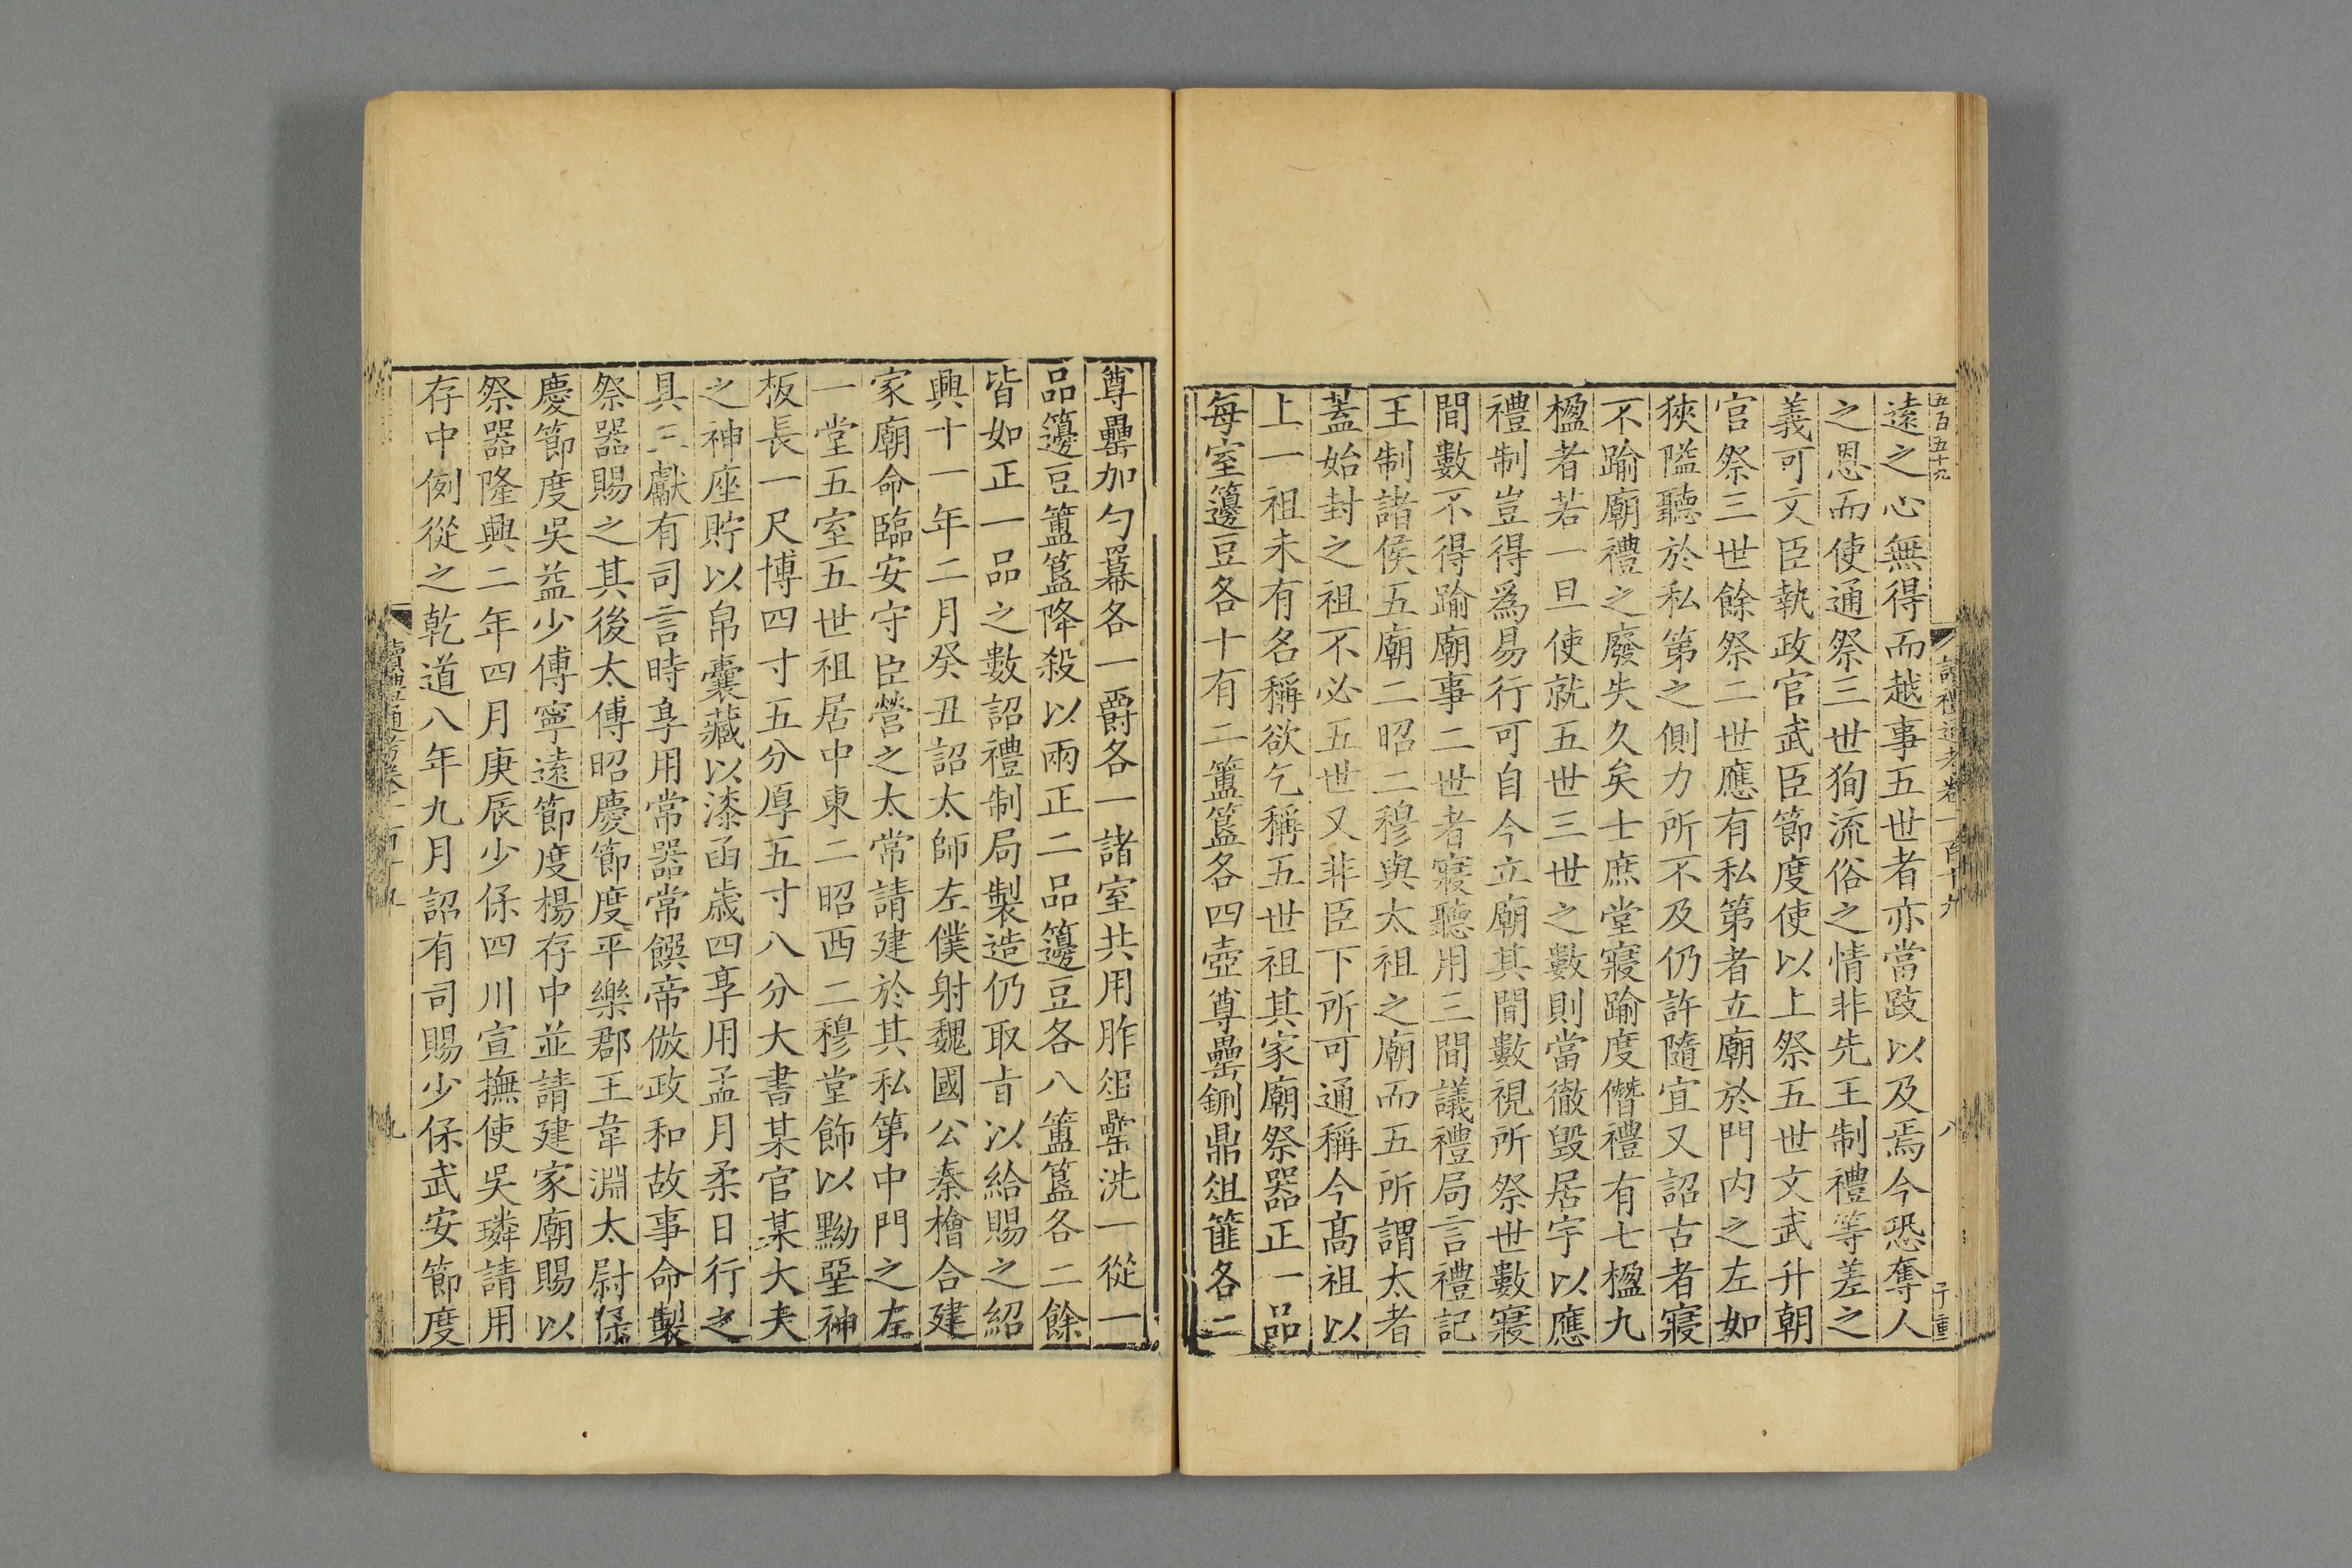 五百五十九
讀禮通考卷一百十九
八
子重
遠之心無得而越事五世者亦當跂以及焉今恐奪人
之恩而使通祭三世狥流俗之情非先王制禮等差之
義可文臣執政官武臣節度使以上祭五世文武升朝
官祭三世餘祭二世應有私第者立廟於門内之左如
狹隘聽於私第之側力所不及仍許隨宜又詔古者寢
不踰廟禮之廢失久矣士庶堂寢踰度僭禮有七楹九
楹者若一旦使就五世三世之數則當徹毀居宇以應
禮制豈得爲易行可自今立廟其間數視所祭世數寢
間數不得踰廟事二世者寢聽用三間議禮局言禮記
王制諸侯五廟二昭二穆與太祖之廟而五所謂太者
蓋始封之祖不必五世又非臣下所可通稱今髙祖以
上一祖未有名稱欲乞稱五世祖其家廟祭器正一品
每室籩豆各十有二簠簋各四壺尊罍鉶鼎俎篚各二
尊罍加勺羃各一爵各一諸室共用胙俎罍洗一從一
品籩豆簠簋降殺以兩正二品籩豆各八簠簋各二餘
皆如正一品之數詔禮制局製造仍取㫖以給賜之紹
興十一年二月癸丑詔太師左僕射魏國公秦檜合建
家廟命臨安守臣營之太常請建於其私第中門之左
一堂五室五世祖居中東二昭西二穆堂飾以黝堊神
板長一尺博四寸五分厚五寸八分大書某官某大夫
之神座貯以帛囊藏以漆函歲四享用孟月柔日行之
具三獻有司言時享用常器常饌帝倣政和故事命製
祭器賜之其後太傅昭慶節度平樂郡王韋淵太尉保
慶節度吳益少傅寧遠節度楊存中並請建家廟賜以
祭器隆興二年四月庚辰少保四川宣撫使吳璘請用
存中例從之乾道八年九月詔有司賜少保武安節度
讀禮通考卷一百十九
九